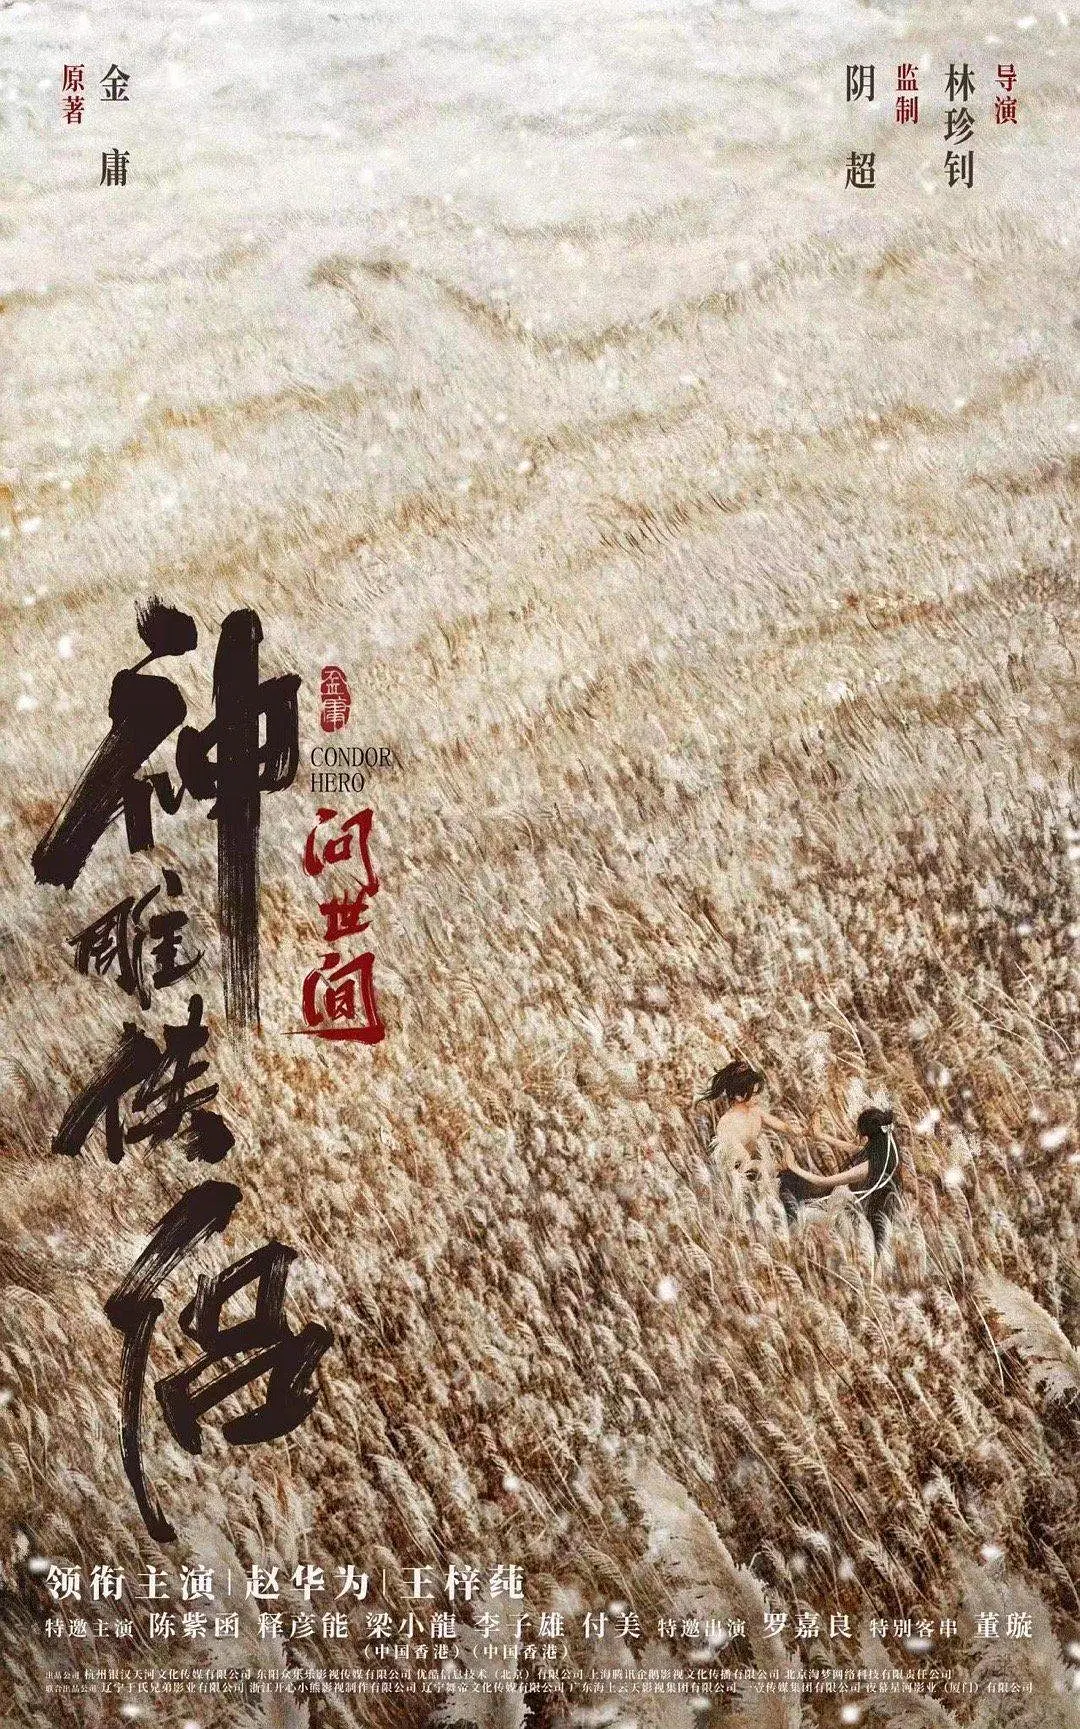 导演
林珍钊
监制
阴超
金庸
原著
神雕侠侣
金庸
CONDOR
HERO
问世间
领衔主演|赵华为|王梓莼
特邀主演 陈紫函 释彦能 梁小龍 李子雄 付美 特邀出演 罗嘉良 特别客串 董璇
(中国香港) (中国香港)
出品公司 杭州银汉天河文化传媒有限公司 东阳众乐乐影视传媒有限公司 优酷信息技术（北京）有限公司 上海腾讯企鹅影视文化传播有限公司 北京淘梦网络科技有限责任公司
联合出品公司 辽宁于氏兄弟影业有限公司 浙江开心小熊影视制作有限公司 辽宁舞帝文化传媒有限公司 广东海上云天影视集团有限公司 一壹传媒集团有限公司 夜幕星河影业（厦门）有限公司